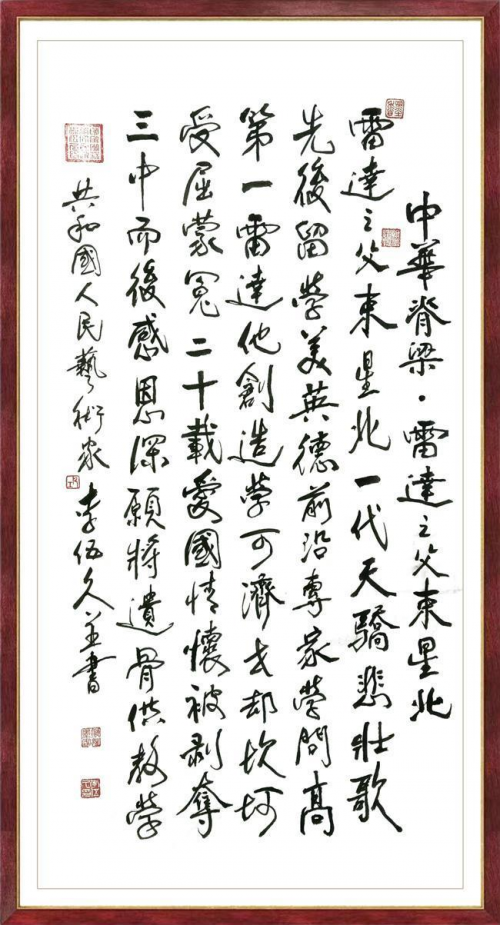 中華脊梁·雷達之父束星北
雷達之父束星北一代天驕悲壯歌
先後留學美英德前沿專家學問高
第一雷達他創造學可濟世却坎坷
受屈蒙冤二十載愛國情懷被剥奪
三中而後感恩深願將遺骨供教學
共和國人民藝術家李伍久並書